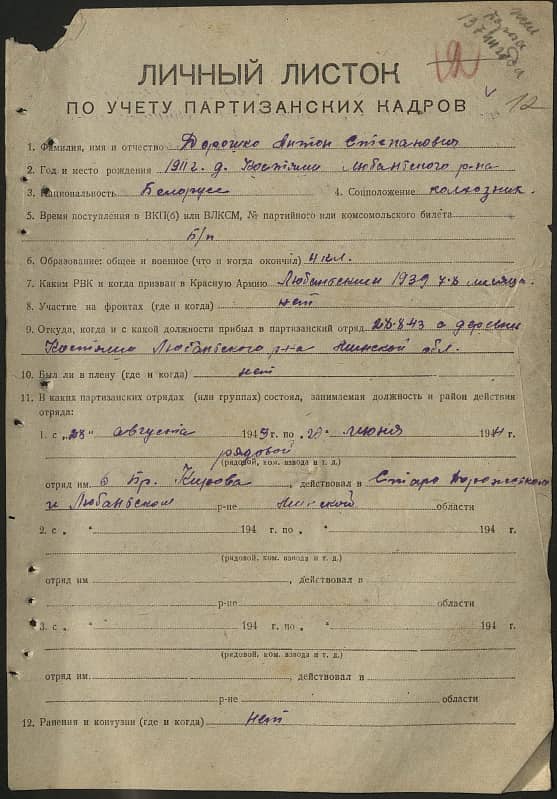 12
ЛИЧНЫЙ ЛИСТОК
ПО УЧЕТУ ПАРТИЗАНСКИХ КАДРОВ
1. Фамилия, имя и отчество Дорошко Антон Степанович
2. Год и место рождения 1911 г. д. Костюки Любанского р-на
3. Национальность Белорусс 4. Соцположение колхозник.
5. Время поступления в ВКП(б) или ВЛКСМ, № партийного или комсомольского билета
Б/п
6. Образование: общее и военное (что и когда окончил) 4 кл.
7. Каким РВК и когда призван в Красную Армию Любанским 1939
8. Участие на фронтах (где и когда) нет
9. Откуда, когда и с какой должности прибыл в партизанский отряд 28.8.43 с деревни
Любанского р-на Минской обл.
10. Был ли в плену (где и когда) нет
11. В каких партизанских отрядах (или группах) состоял, занимаемая должность и район действия
отряда:
1. с „28" августа 1943 г. по „ июня 1944 г.
рядовой
(рядовой, ком. взвода и т. д.)
отряд им. Бр. Кирова, действовал в Старо Дорожском
и Любанском р-не Минской области
2. с „ " 194 г. по „ " 194 г.
(рядовой, ком. взвода и т. д.)
отряд им , действовал в
р-не области
3. с „ " 194 г. по „ " 194 г.
(рядовой, ком. взвода и т. д.)
отряд им , действовал в
р-не области
12. Ранения и контузии (где и когда) нет